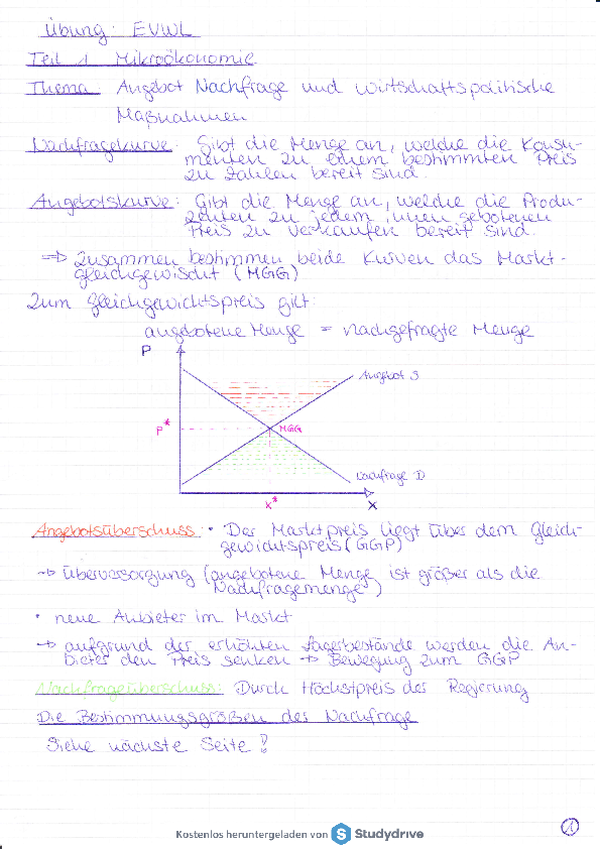 Übung: EVWL
Teil 1 Mikroökonomie
Thema: Angebot Nachfrage und wirtschaftspolitische
Maßnahmen
Nachfragekurve: Gibt die Menge an, welche die Konsu-
menten zu einem bestimmten Preis
zu zahlen bereit sind.
Angebotskurve: Gibt die Menge an, welche die Produ-
zenten zu jedem ihnen gebotenen
Preis zu verkaufen bereit sind.
=> Zusammen bestimmen beide Kurven das Markt-
gleichgewischt (MGG)
Zum Gleichgewichtspreis gilt:
angebotene Menge = nachgefragte Menge
P
Angebot S
P* MGG
Nachfrage D
x* X
Angebotsüberschuss: • Der Marktpreis liegt über dem Gleich-
gewichtspreis (GGP)
-> Überversorgung (angebotene Menge ist größer als die
Nachfragemenge)
• neue Anbieter im Markt
-> aufgrund der erhöhten Lagerbestände werden die An-
bieter den Preis senken -> Bewegung zum GGP
Nachfrageüberschuss: Durch Höchstpreis der Regierung
Die Bestimmungsgrößen der Nachfrage
Siehe nächste Seite!
1
Kostenlos heruntergeladen von Studydrive